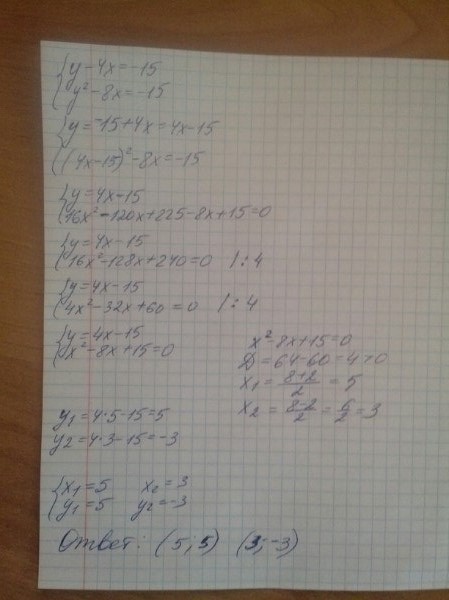 {y-4x=-15
{y²-8x=-15
{y=-15+4x=4x-15
{(4x-15)²-8x=-15
{y=4x-15
{16x²-120x+225-8x+15=0
{y=4x-15
{16x²-128x+240=0 /:4
{y=4x-15
{4x²-32x+60=0 /:4
{y=4x-15
{x²-8x+15=0
x²-8x+15=0
D=64-60=4>0
x₁=(8+2)/2=5
x₂=(8-2)/2=6/2=3
y₁=4·5-15=5
y₂=4·3-15=-3
{x₁=5 x₂=3
{y₁=5 y₂=-3
Ответ: (5;5) (3;-3)